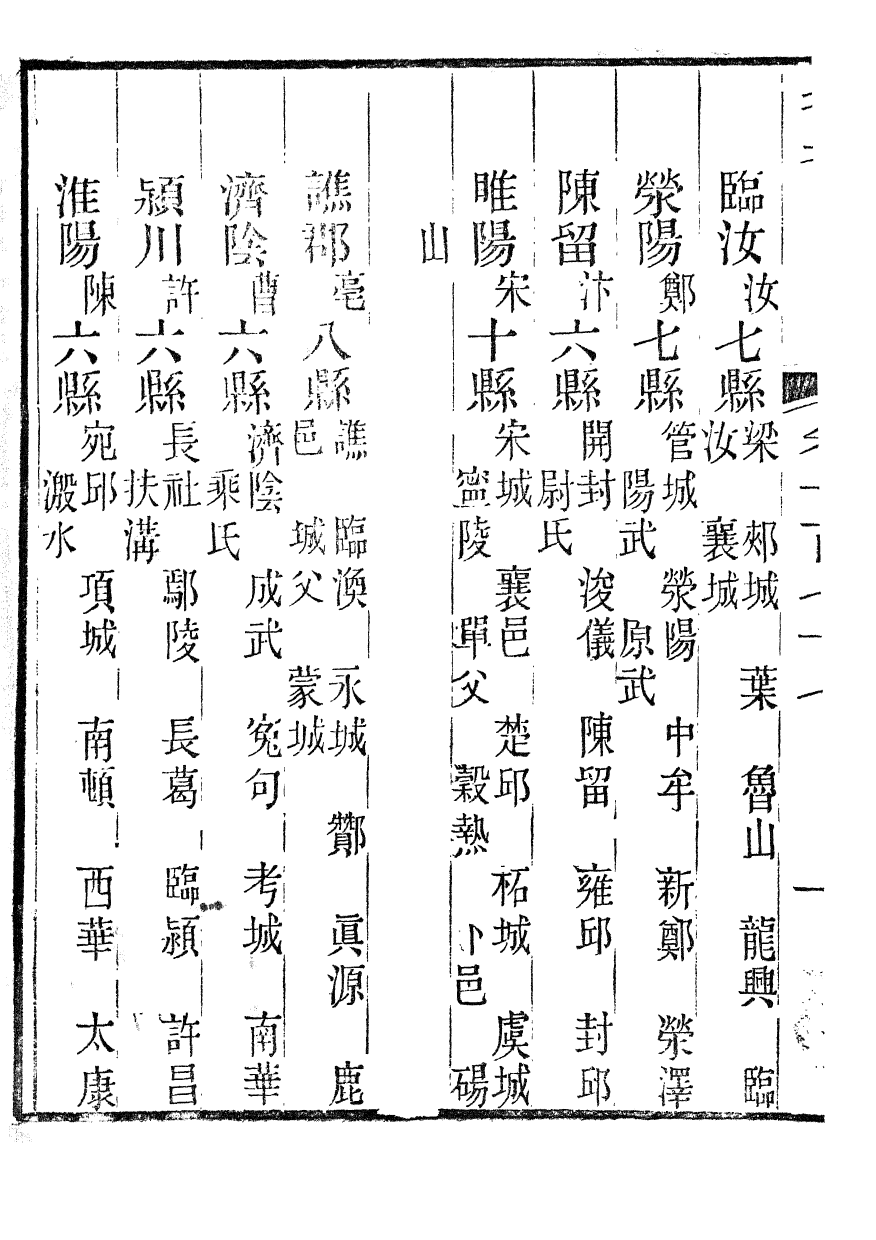 臨汝汝七縣梁 郟城 葉 魯山 龍興 臨
汝 襄城
滎陽鄭七縣管城 滎陽 中牟 新鄭 滎澤
陽武 原武
陳留汴六縣開封 浚儀 陳留 雍邱 封邱
尉氏
睢陽宋十縣宋城 襄邑 楚邱 柘城 虞城
寧陵 單父 穀熱 卜邑 碭
山
譙郡亳八縣譙 臨渙 永城 酇 眞源 鹿
邑 城父 蒙城
濟陰曹六縣濟陰 成武 寃句 考城 南華
乘氏
潁川許六縣長社 鄢陵 長葛 臨潁 許昌
扶溝
淮陽陳六縣宛邱 項城 南頓 西華 太康
溵水